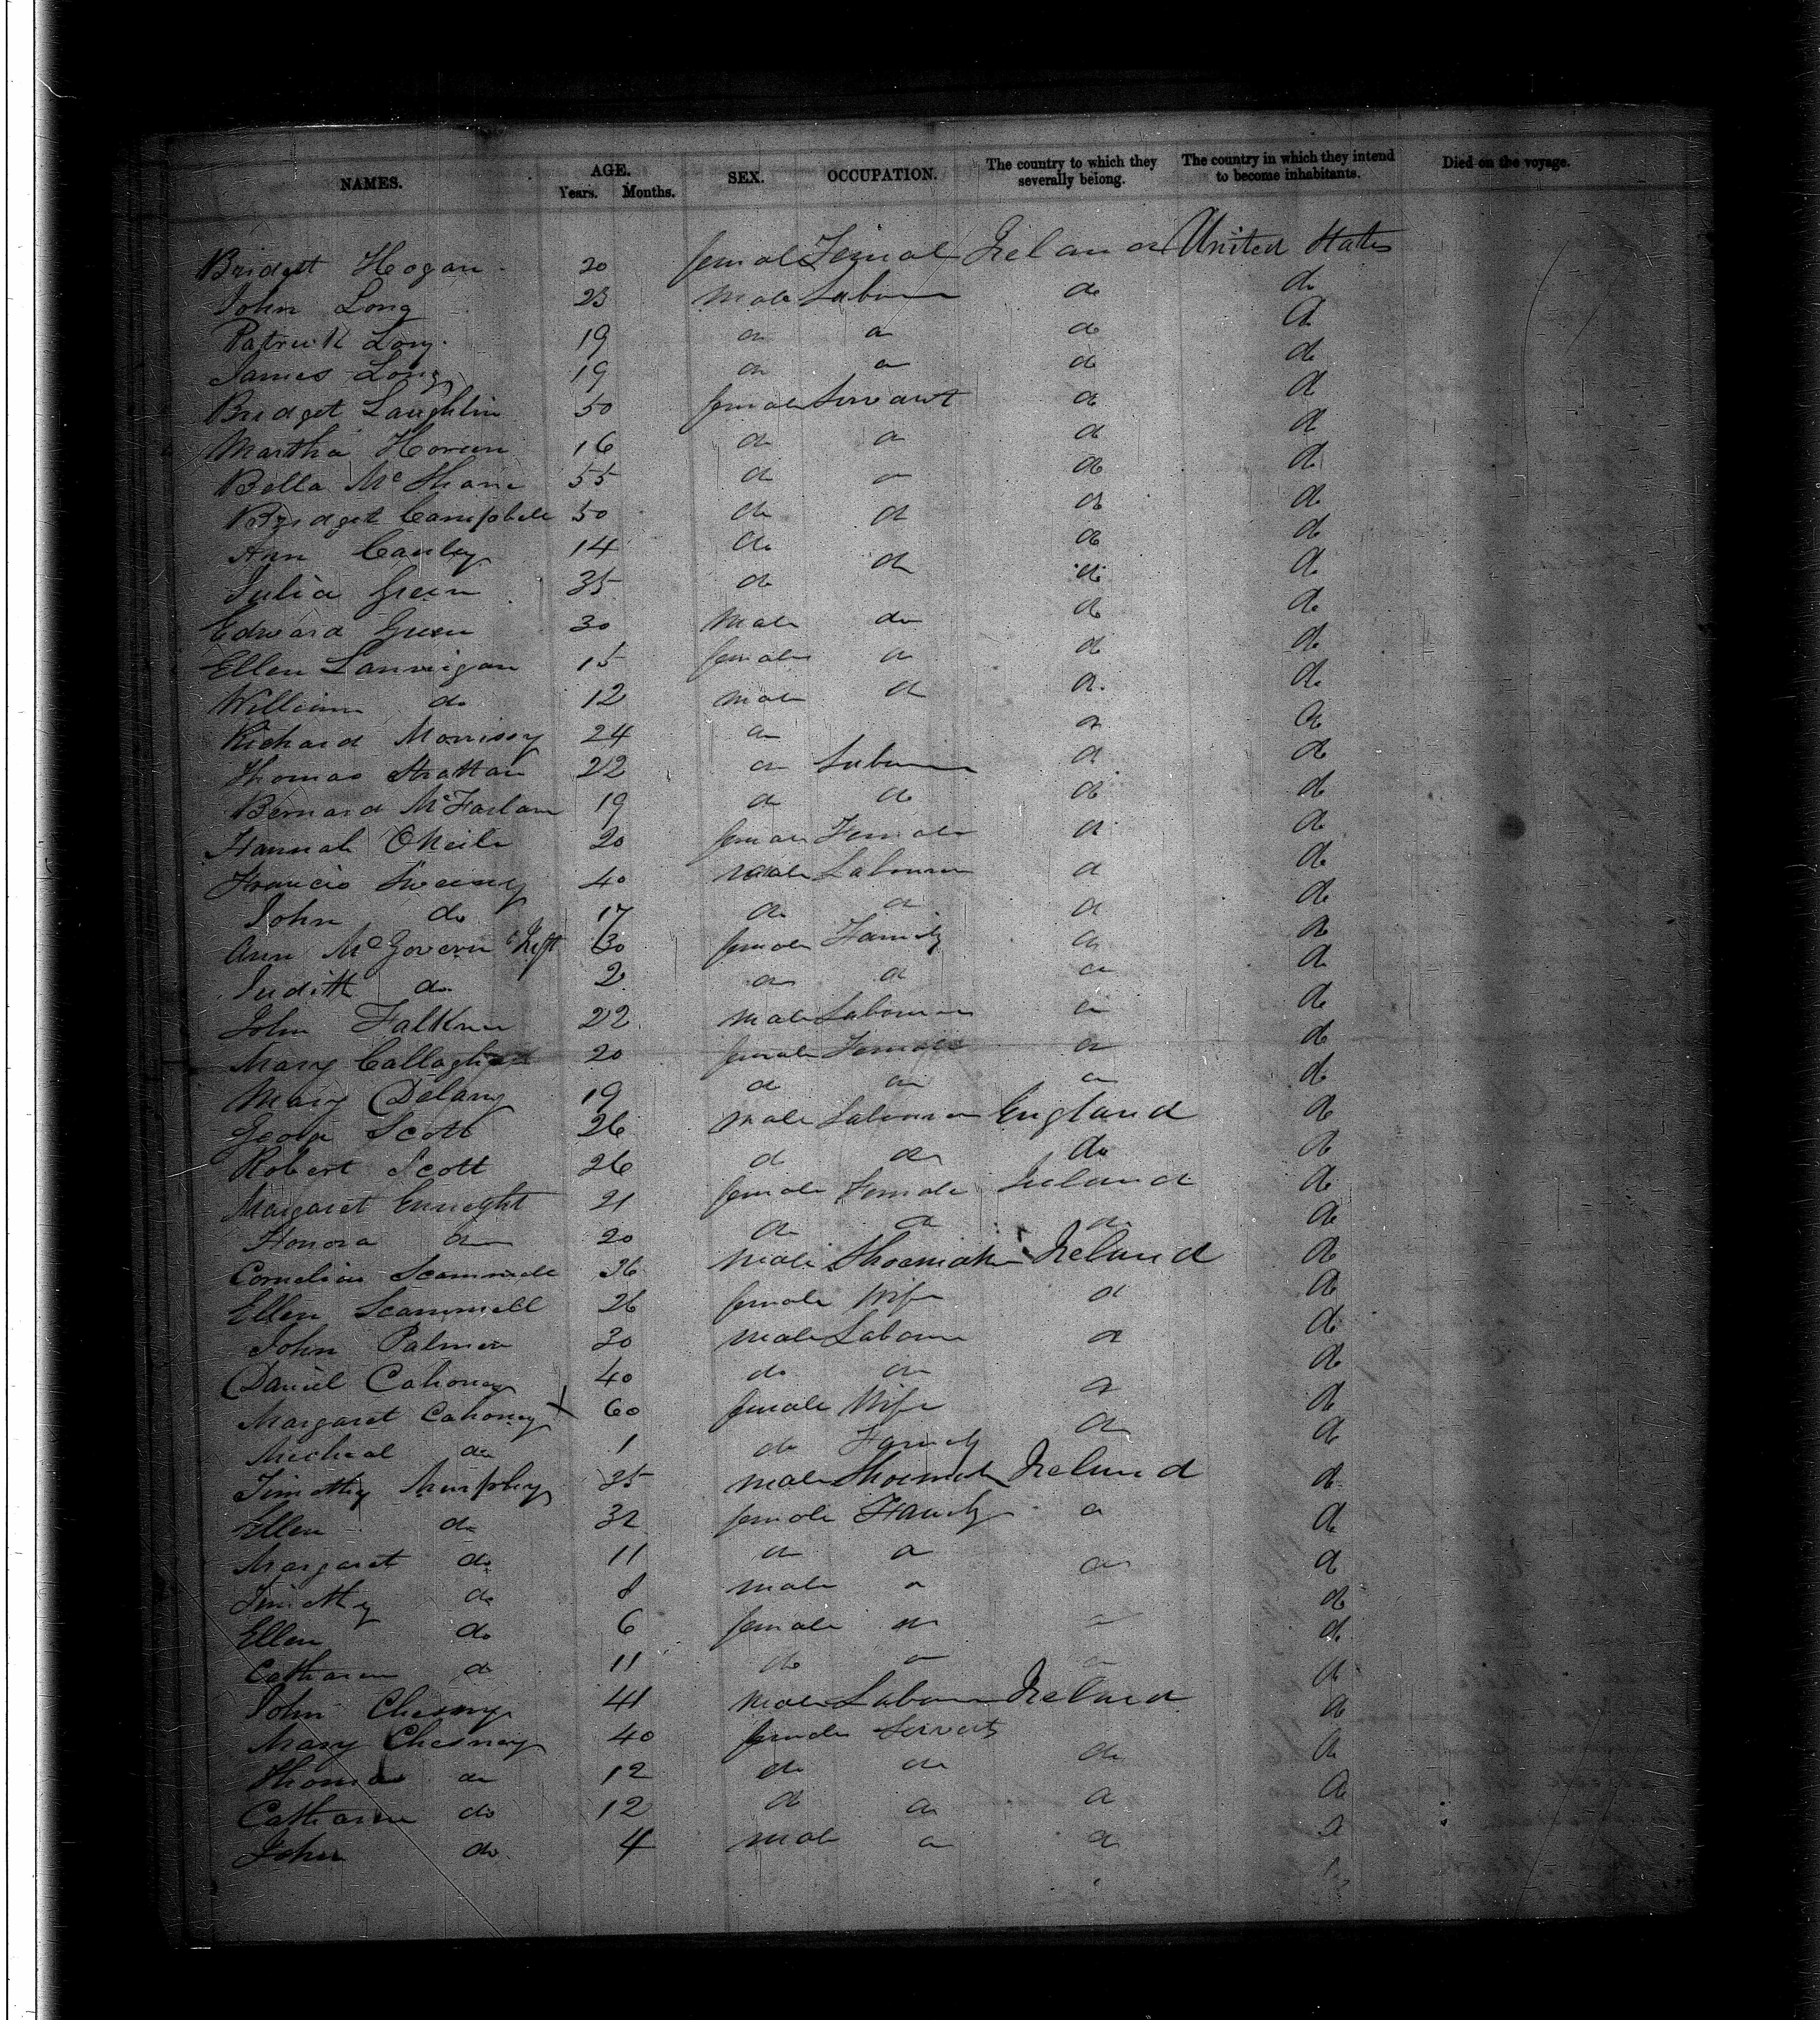 NAMES. AGE. Years. Months. SEX. OCCUPATION. The country to which they severally belong. The country in which they intend to become inhabitants. Died on the voyage.
Bridgett Hogan 20 female Femal Ireland United States
John Long 23 male Labour do do
Patrick Long 19 do do do do
James Long 19 do do do do
Bridget Laughlin 50 female Servant do do
Martha 16 do do do do
Bella McShane 55 do do do do
Bridget Campbell 50 do do do do
Ann Cauley 14 do do do
Julia Green 35 do do do do
Edward Green 30 Male do do do
Ellen Lannigan 15 female do do do
William do 12 male do do do
Richard Morrissy 24 do do do
Thomas Strattan 22 do Labour do do
Bernard McFarlan 19 do do do do
Hannah ONeile 20 female Female do do
Francis Sweeney 40 male Labourer do do
John do 17 do do do do
Ann McGovern 30 female Family do do
Judith do 2 do do do do
John Falkner 22 male Labourer do do
Mary Callaghan 20 female Female do do
Mary Delany 19 do do do do
George Scott 26 male Labourer England do
Robert Scott 26 do do do do
Margaret Enneght 21 female Female Ireland do
Honora do 20 do do do do
Cornelius Scammell 36 male Shoemaker Ireland do
Ellen Scammell 26 female Wife do do
John Palmer 30 male Labour do do
Daniel Cahoney 40 do do do
Margaret Cahoney X 60 female Wife do do
Micheal do 1 do Family do do
Timothy Murphy 35 male Shoemak Ireland do
Ellen do 32 female Family do do
Margaret do 11 do do do do
Timothy do 8 male do do
Ellen do 6 female do do do
Catharine do 11 do do do do
John Chesney 41 male Labour Ireland do
Mary Chesney 40 female Servants do
Thomas do 12 do do do do
Catharine do 12 do do do do
John do 4 male do do do